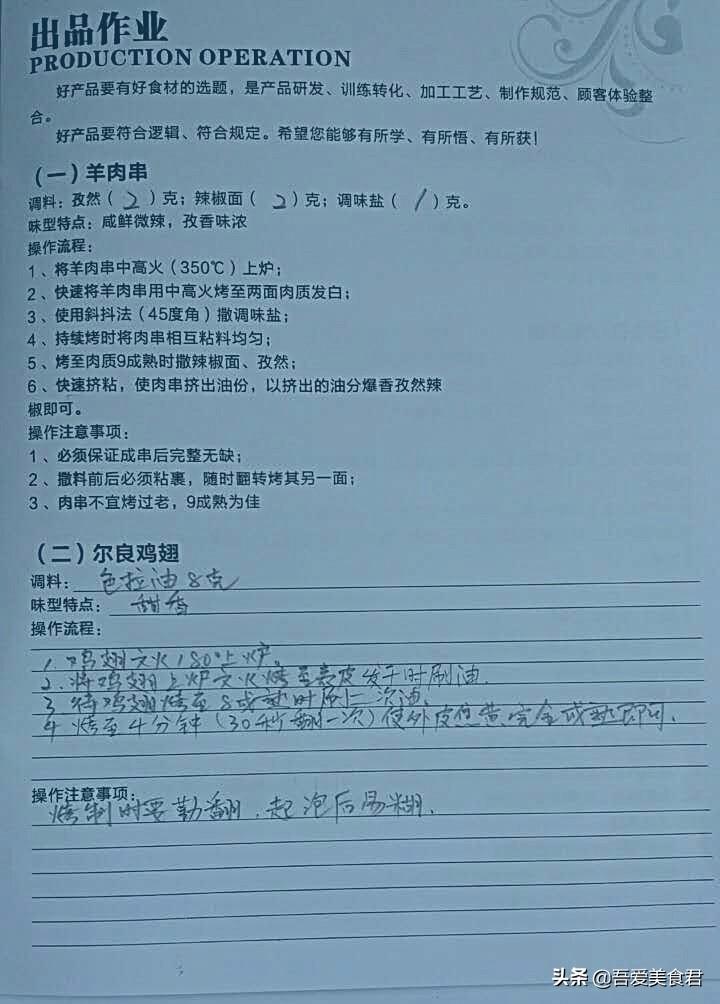 出品作业
PRODUCTION OPERATION
好产品要有好食材的选题，是产品研发、训练转化、加工工艺、制作规范、顾客体验整
合。
好产品要符合逻辑、符合规定。希望您能够有所学、有所悟、有所获！
（一）羊肉串
调料：孜然（2）克；辣椒面（2）克；调味盐（1）克。
味型特点：咸鲜微辣，孜香味浓
操作流程：
1、将羊肉串中高火（350℃）上炉；
2、快速将羊肉串用中高火烤至两面肉质发白；
3、使用斜抖法（45度角）撒调味盐；
4、持续烤时将肉串相互粘料均匀；
5、烤至肉质9成熟时撒辣椒面、孜然；
6、快速挤粘，使肉串挤出油份，以挤出的油分爆香孜然辣
椒即可。
操作注意事项：
1、必须保证成串后完整无缺；
2、撒料前后必须粘裹，随时翻转烤其另一面；
3、肉串不宜烤过老，9成熟为佳
（二）尔良鸡翅
调料：色拉油8克
味型特点：甜香
操作流程：
1.鸡翅文火180°上炉。
2.将鸡翅上炉文火烤至表皮发干时刷油.
3 待鸡翅烤至8成熟时刷二次油.
4 烤至4分钟（30秒翻一次）使外皮焦黄完全成熟即可.
操作注意事项：
烤制时要勤翻.起泡后易糊.
头条 @吾爱美食君